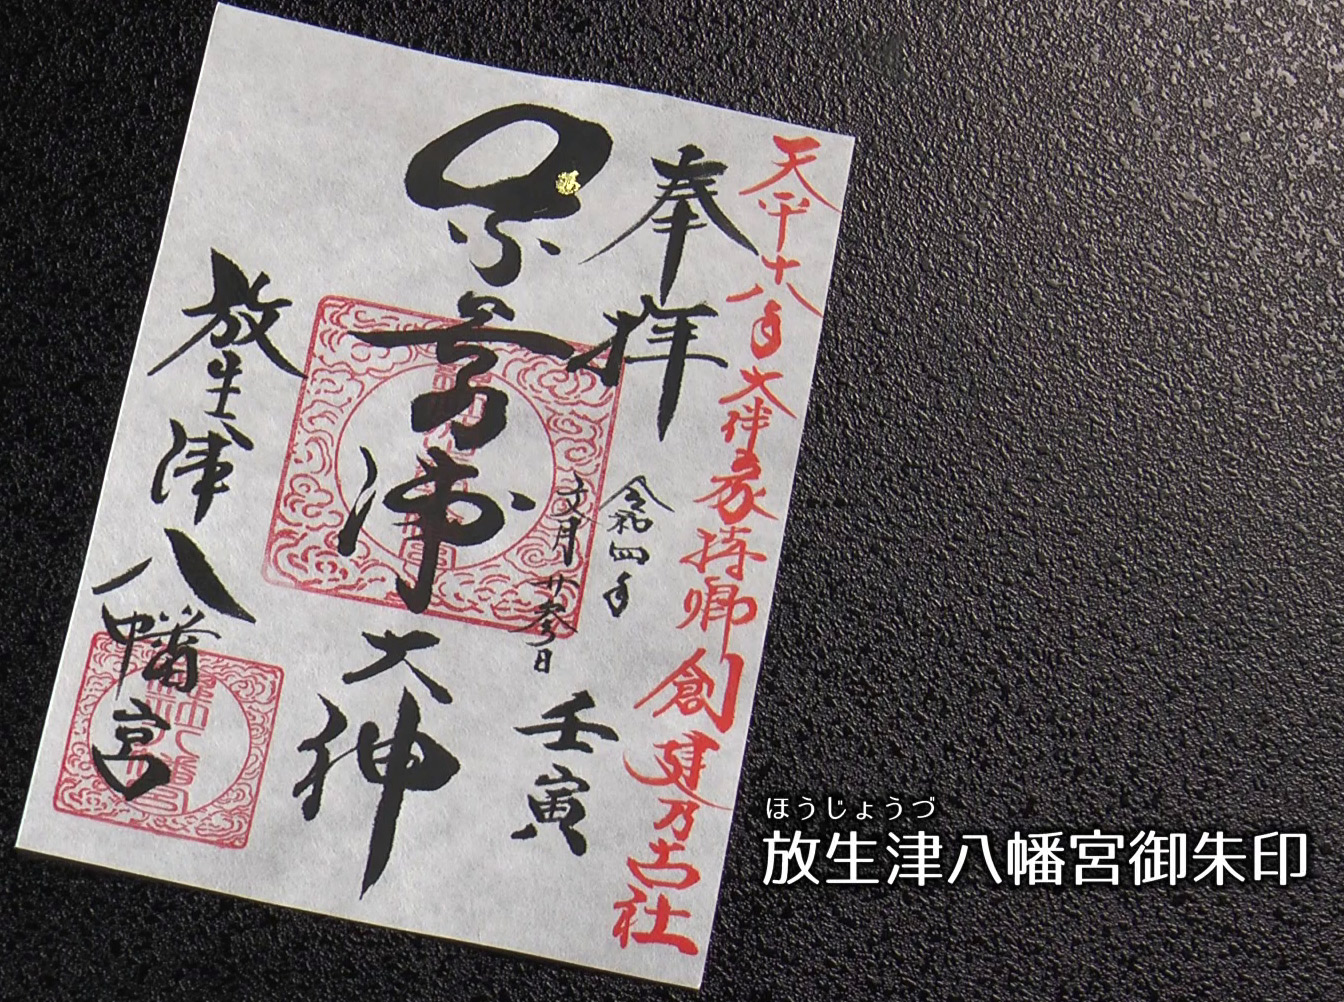 天平十八年大伴家持卿創建乃古社
奉拝
令和四年
文月廿参日
壬寅
大神
放生津八幡宮
ほうじょうづ
放生津八幡宮御朱印